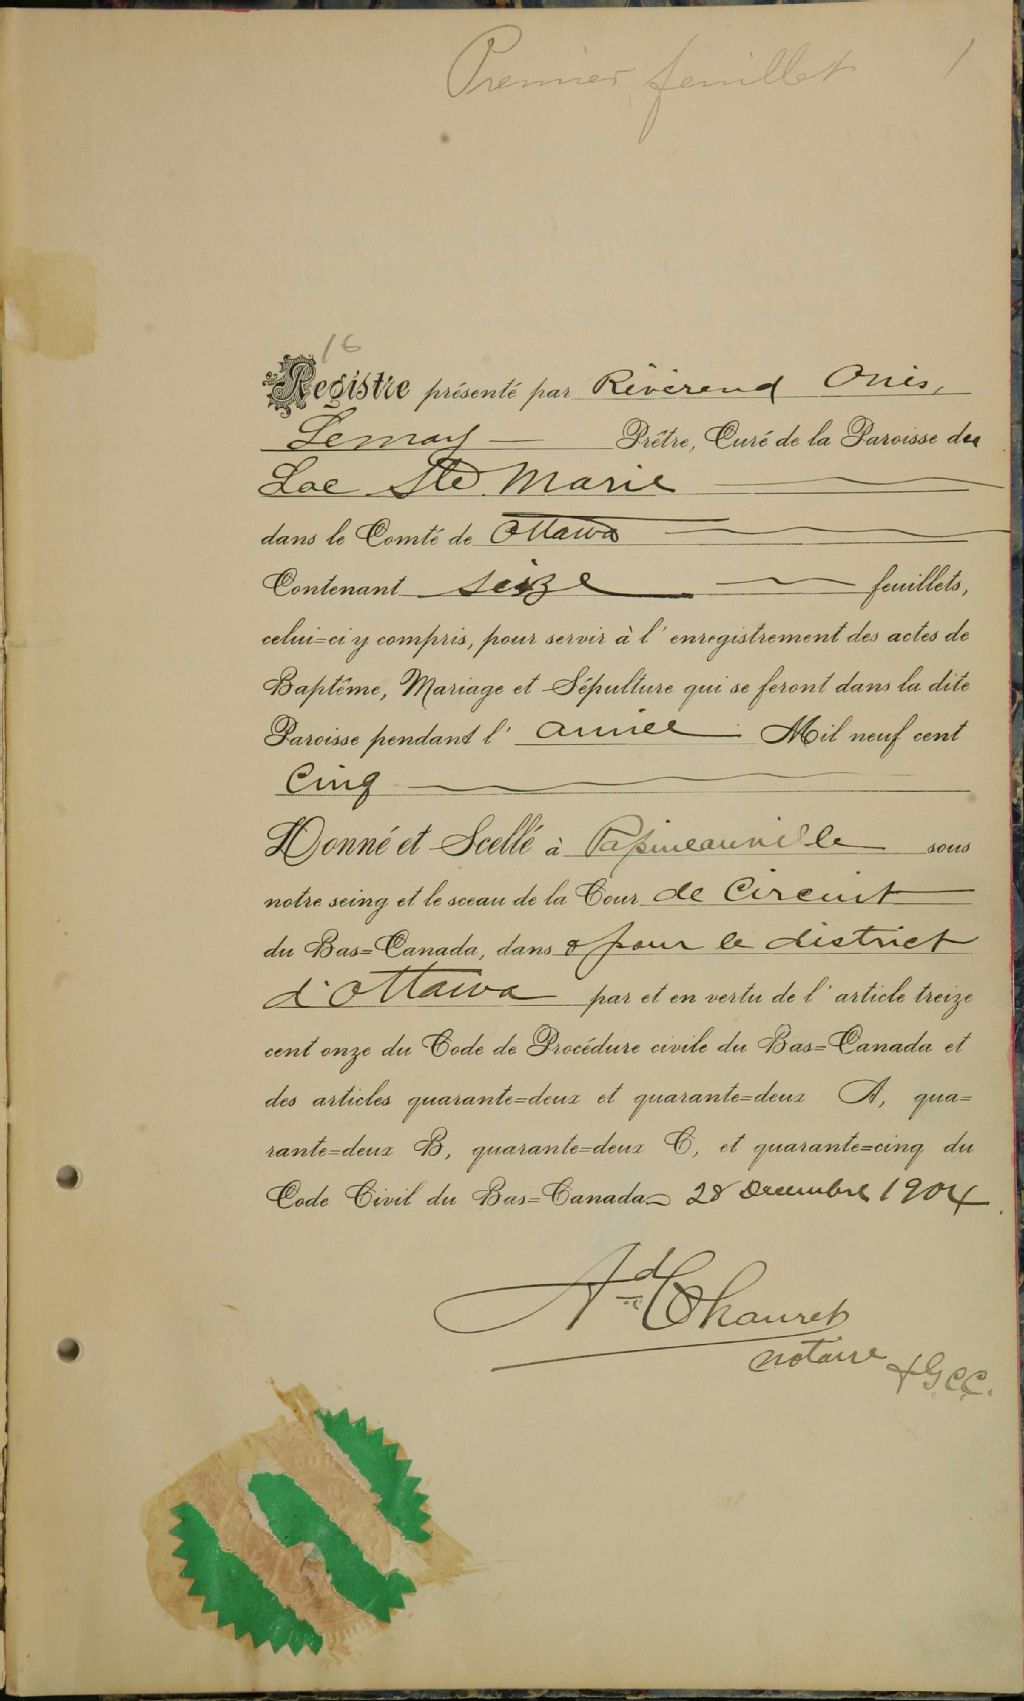 Premier feuillet 1
16
Registre présenté par Révérend Onés,
Lemay Prêtre, Curé de la Paroisse du
Lac Ste Marie
dans le Comté de Ottawa
Contenant seize feuillets,
celui=ci y compris, pour servir à l'enregistrement des actes de
Baptême, Mariage et Sépulture qui se feront dans la dite
Paroisse pendant l'année Mil neuf cent
Cinq
Donné et Scellé à Papineauville sous
notre seing et le sceau de la Cour de Circuit
du Bas=Canada, dans & pour le district
d'Ottawa par et en vertu de l'article treize
cent onze du Code de Procédure civile du Bas=Canada et
des articles quarante=deux et quarante=deux A, qua=
rante=deux B, quarante=deux C, et quarante=cinq du
Code Civil du Bas=Canada 28 Decembre 1904
Ad Chauret
notaire & G C.C.